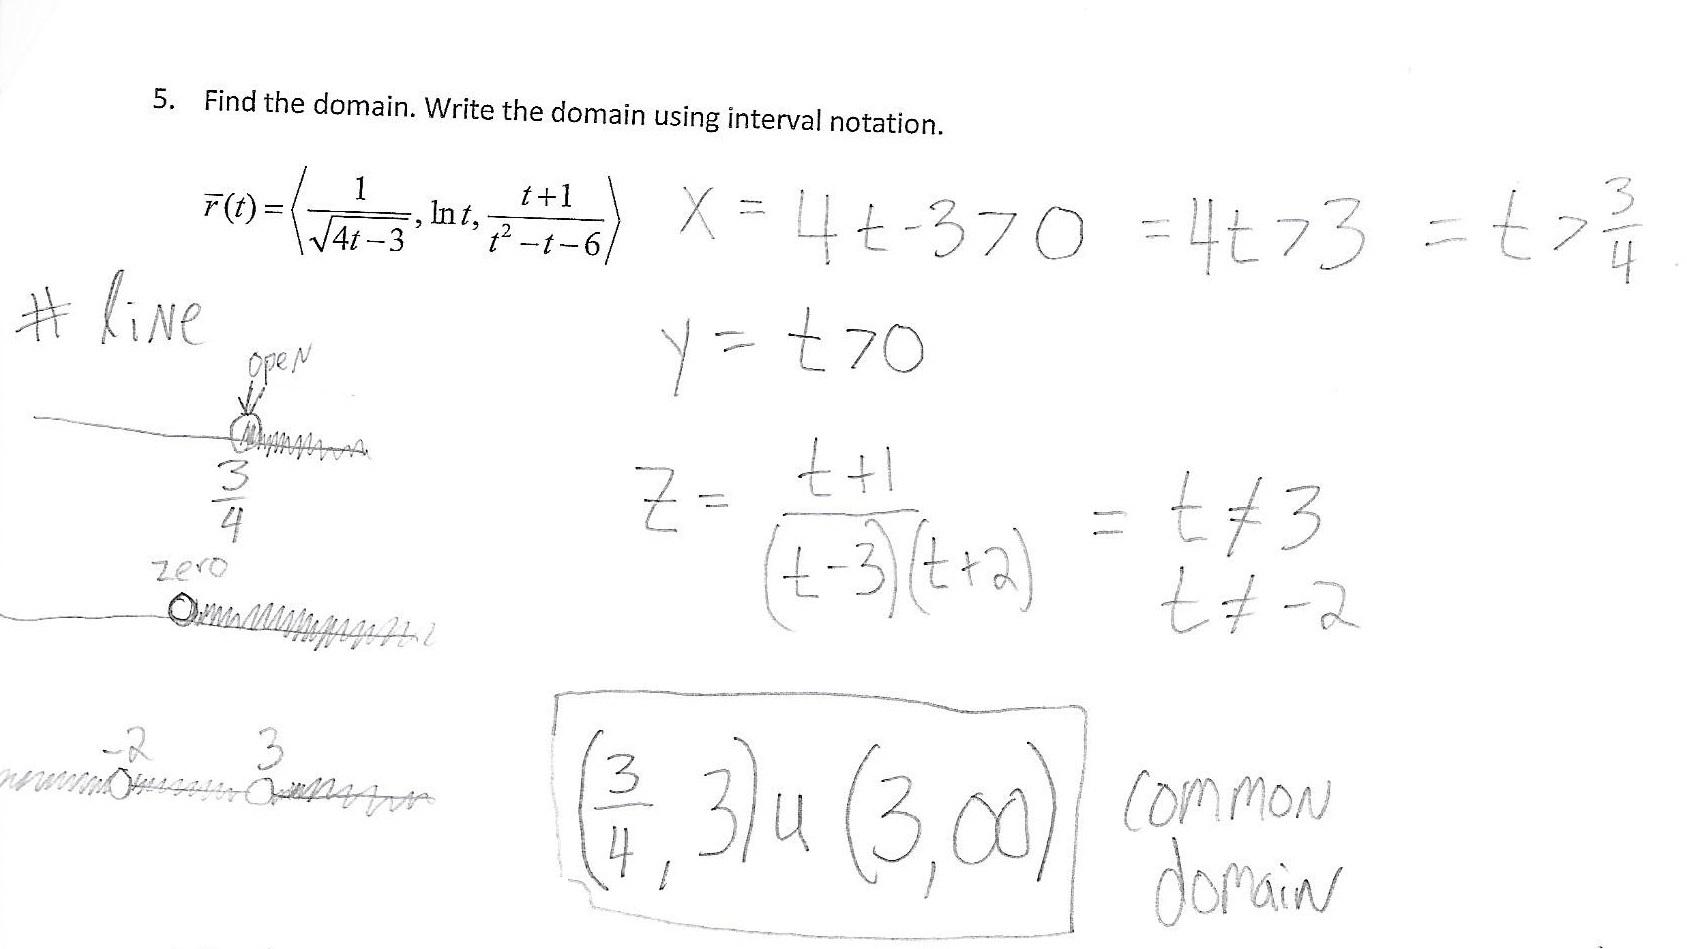 5. Find the domain. Write the domain using interval notation.
r̅(t) = ⟨ 1/√(4t−3), ln t, (t+1)/(t²−t−6) ⟩
X = 4t-3>0 = 4t>3 = t>3/4
# line
open
y = t>0
3/4
z = (t+1)/((t-3)(t+2)) = t≠3
t≠-2
zero
-2 3
(3/4, 3) u (3, ∞)
common
domain